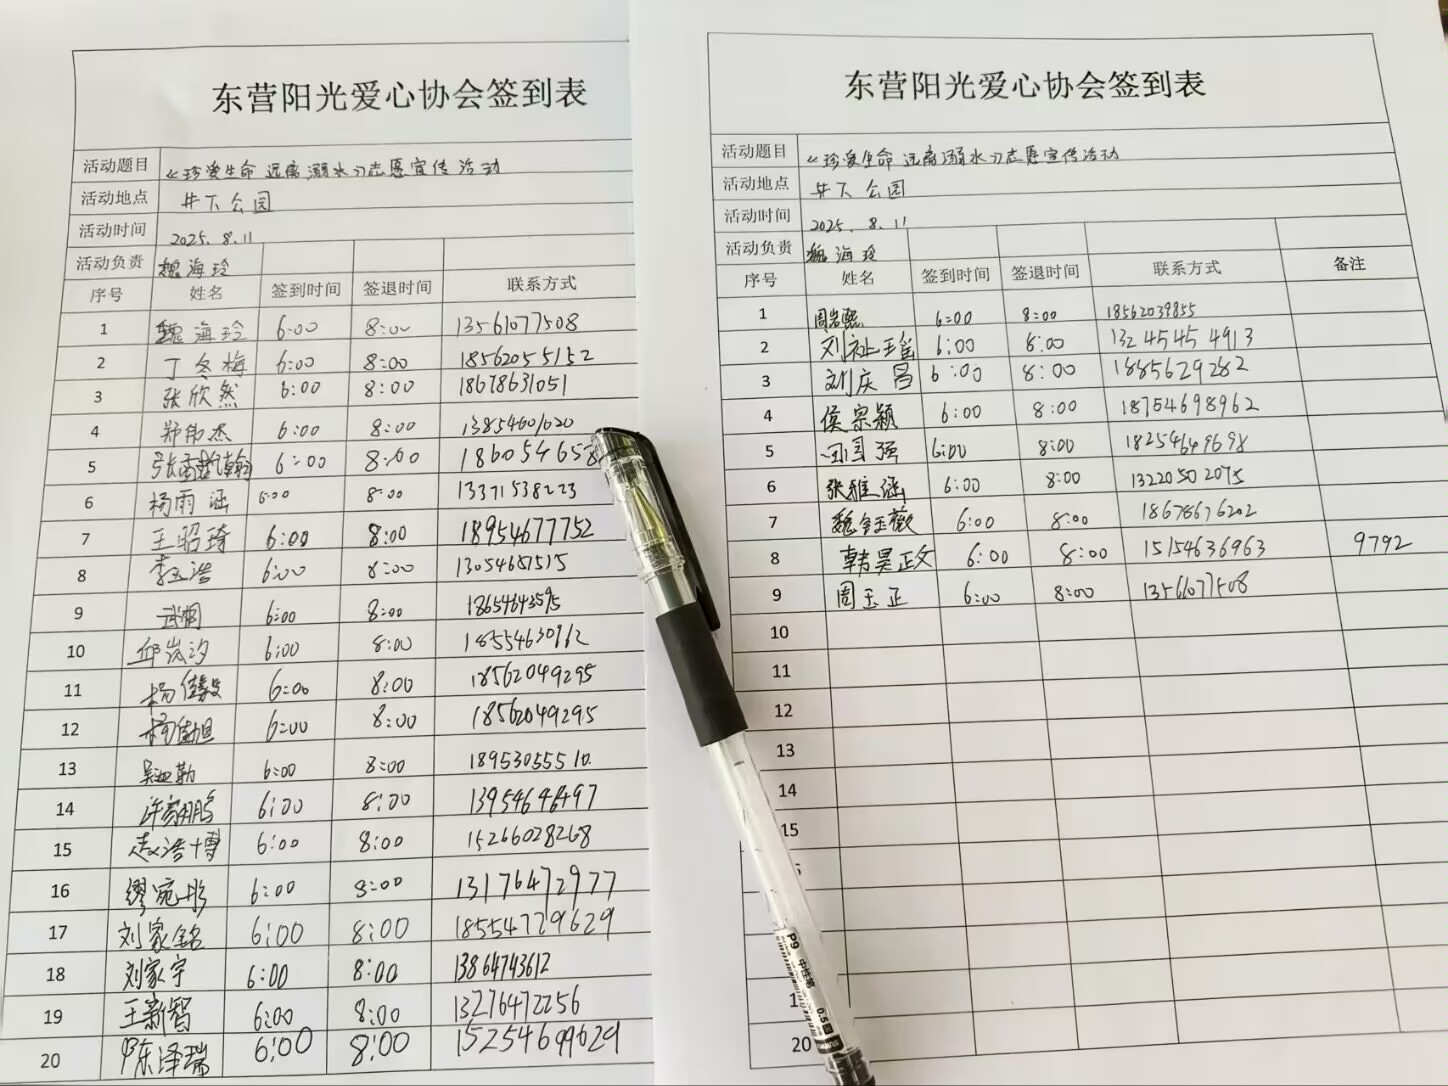 东营阳光爱心协会签到表
活动题目 《珍爱生命 远离溺水》志愿宣传活动
活动地点 井下公园
活动时间 2025.8.11
活动负责 魏海玲
序号 姓名 签到时间 签退时间 联系方式
1 魏海玲 6:00 8:00 13561077508
2 丁冬梅 6:00 8:00 18562055152
3 张欣然 6:00 8:00 18678631051
4 郑伟杰 6:00 8:00 13854601020
5 6:00 8:00 186054658
6 杨雨涵 6:00 8:00 13371538223
7 王昭琦 6:00 8:00 18954677752
8 李玉浩 6:00 8:00 13054687515
9 6:00 8:00 18654643595
10 邱岚汐 6:00 8:00 18554630962
11 杨佳毅 6:00 8:00 18562049295
12 6:00 8:00 18562049295
13 6:00 8:00 18953055510
14 许家鹏 6:00 8:00 13954646497
15 赵浩博 6:00 8:00 15266028268
16 缪宛彤 6:00 8:00 13176472977
17 刘家铭 6:00 8:00 18554729629
18 刘家宇 6:00 8:00 13864743612
19 王新智 6:00 8:00 13276472256
20 陈泽瑞 6:00 8:00 15254699629
东营阳光爱心协会签到表
活动题目 《珍爱生命 远离溺水》志愿宣传活动
活动地点 井下公园
活动时间 2025.8.11
活动负责 魏海玲
序号 姓名 签到时间 签退时间 联系方式 备注
1 6:00 8:00 18562039855
2 刘祉瑶 6:00 8:00 13245454913
3 刘庆昌 6:00 8:00 1885629282
4 侯宗颖 6:00 8:00 18754698962
5 田国强 6:00 8:00 18254649698
6 张雅涵 6:00 8:00 13220502075
7 魏钰薇 6:00 8:00 18678676202
8 韩昊政 6:00 8:00 15154636963 9792
9 周玉正 6:00 8:00 13561077508
10
11
12
13
14
15
20
P9 中性笔 0.5